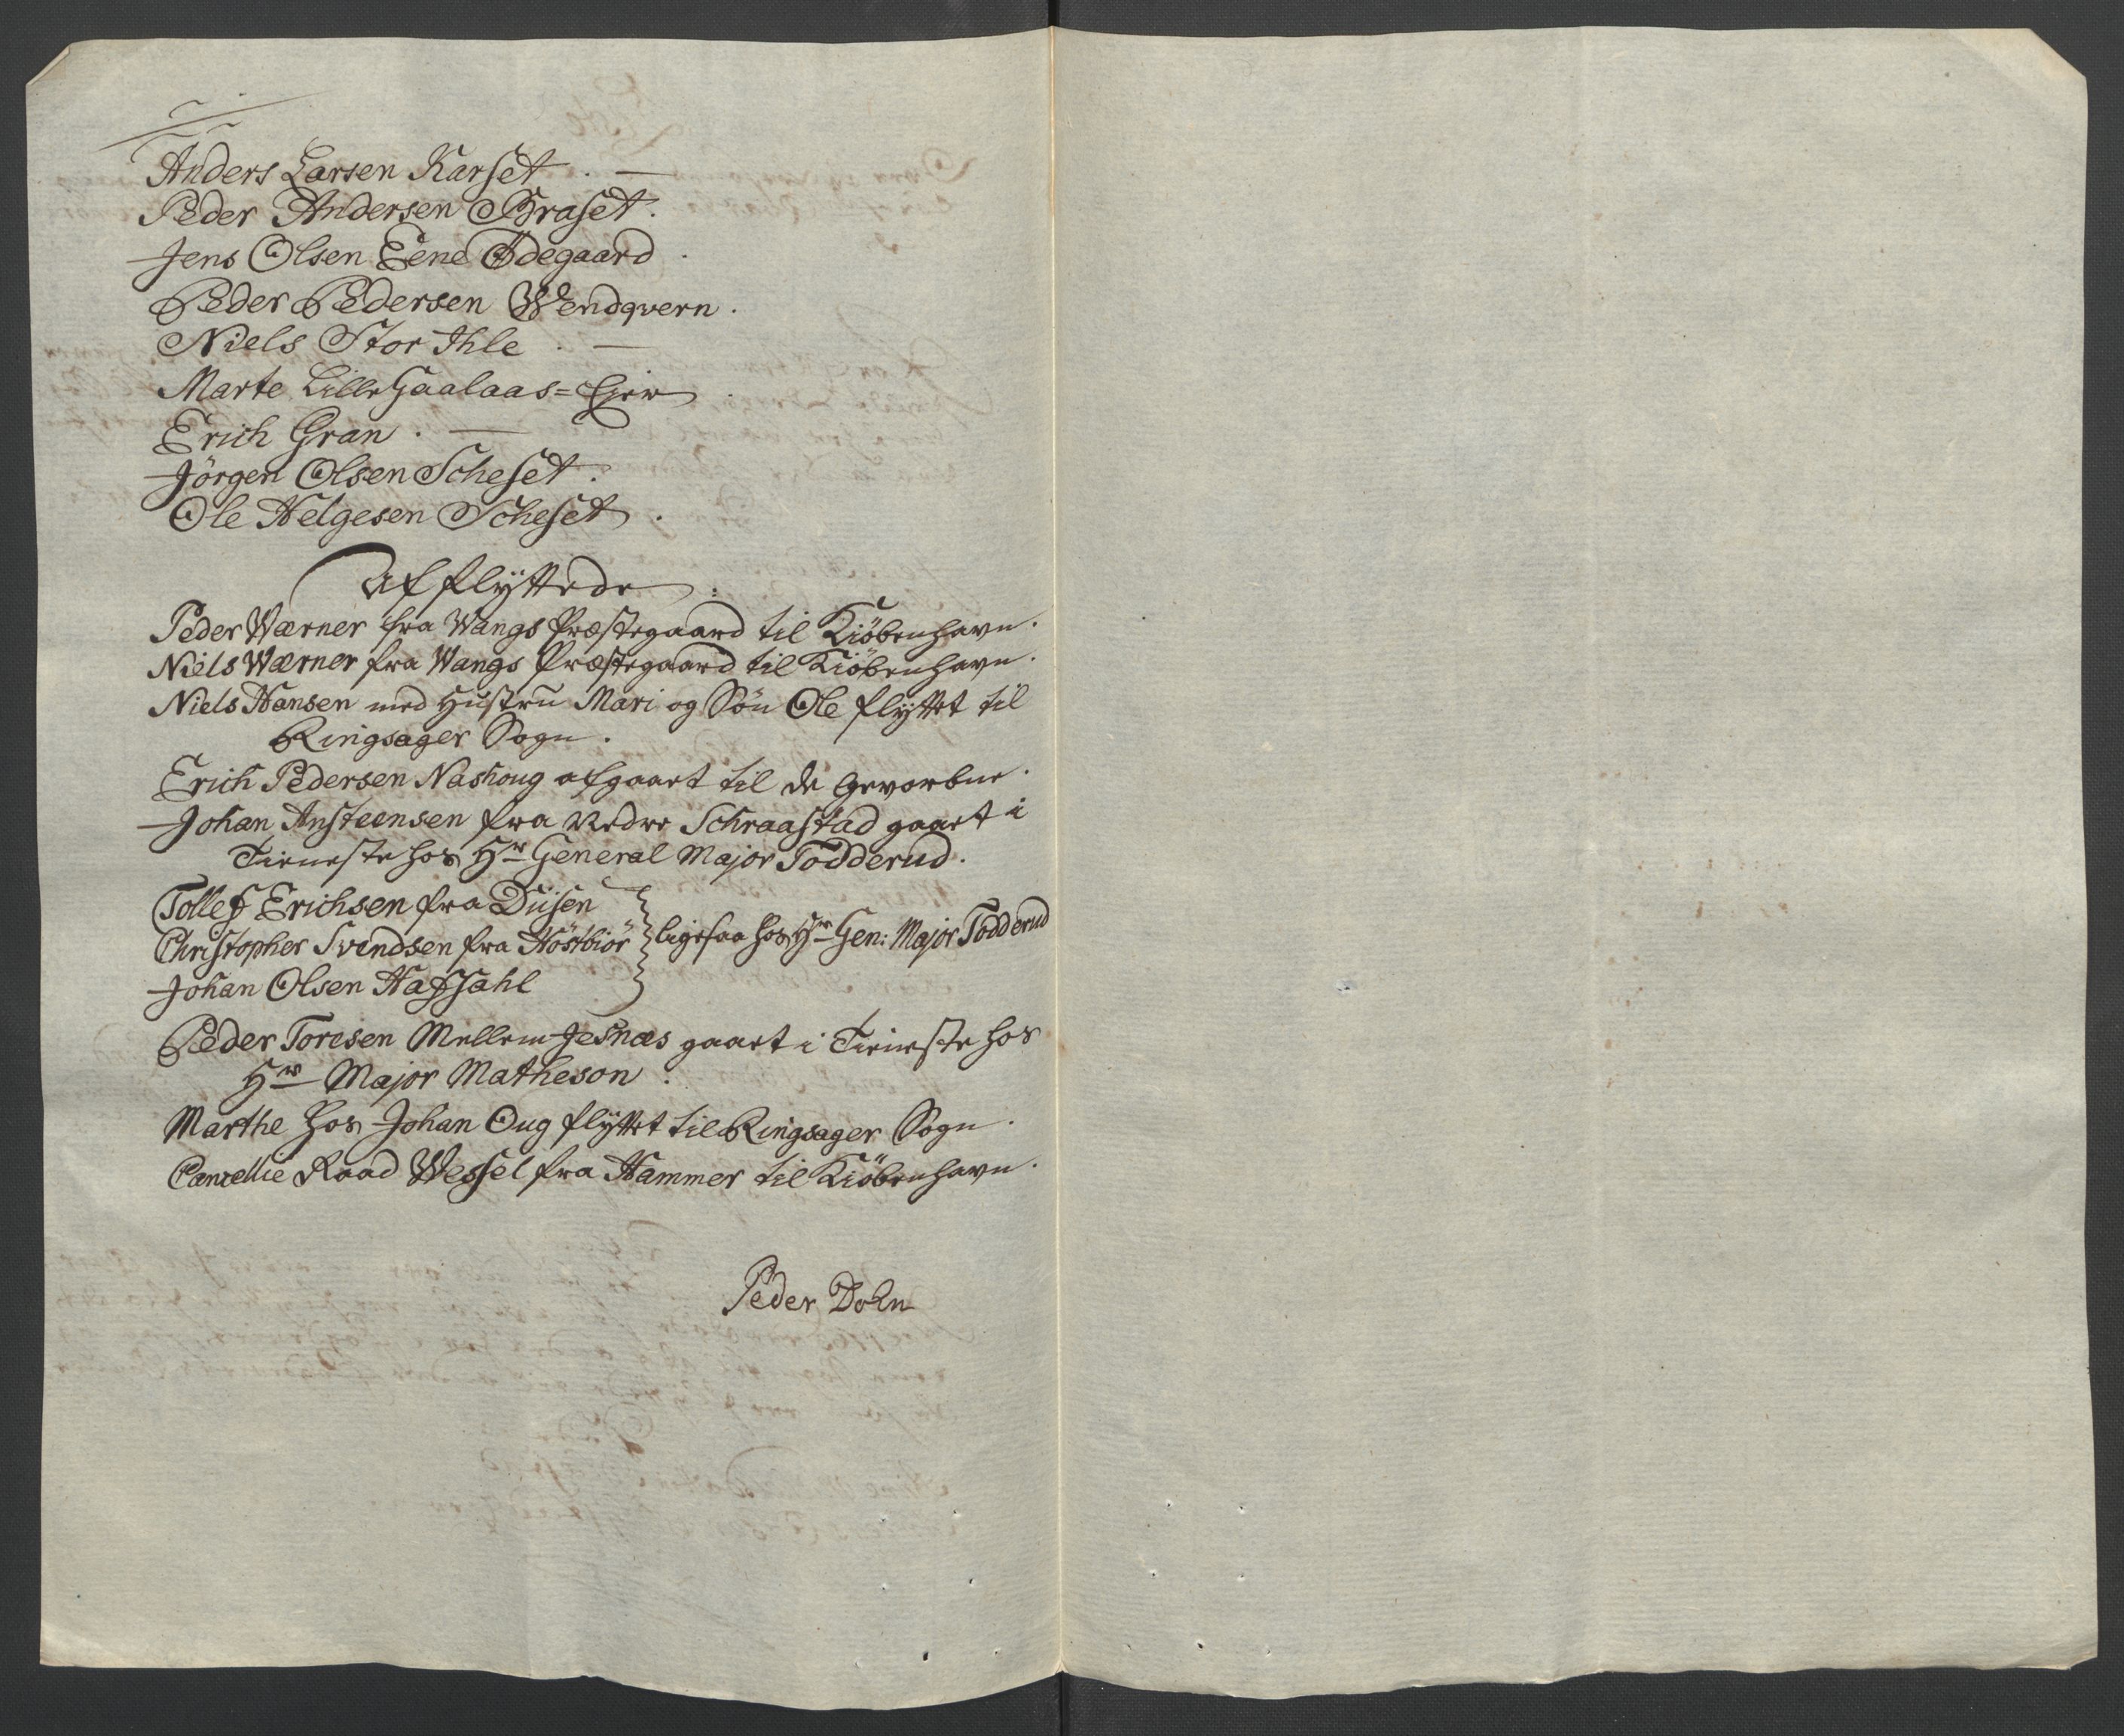 Anders Larsen Karset . —
Peder Andersen Braset .
Jens Olsen Eene Ødegaard .
Peder Pedersen Wendqvern .
Niels Stor Ihle . —
Marte Lille Gaalaas = Eier .
Erich Gran . —
Jörgen Olsen Scheset .
Ole Helgesen Scheset .
Afflÿttede :
Peder Wærner fra Wangs Præstegaard til Kiöbenhavn .
Niels Wærner fra Wangs Præstegaard til Kiöbenhavn .
Niels Hansen med Hustru Mari og Sön Ole flÿttet til
Ringsager Sogn .
Erich Pedersen Nashoug afgaaet til de Gevorbne .
Johan Ansteensen fra Nedre Schraastad gaaet i
Tieneste hos Hr General Major Todderud .
Tollef Erichsen fra Diisen
Christopher Svendsen fra Höstbiör } ligesaa hos Hr Gen: Major Todderud
Johan Olsen Hafsahl
Peder Toresen Mellem Jesnæs gaaet i Tieneste hos
Hr Major Matheson .
Marthe hos Johan Oug flÿttet til Ringsager Sogn .
Cancellie Raad Wessel fra Hammer til Kiöbenhavn .
Peder Dohn